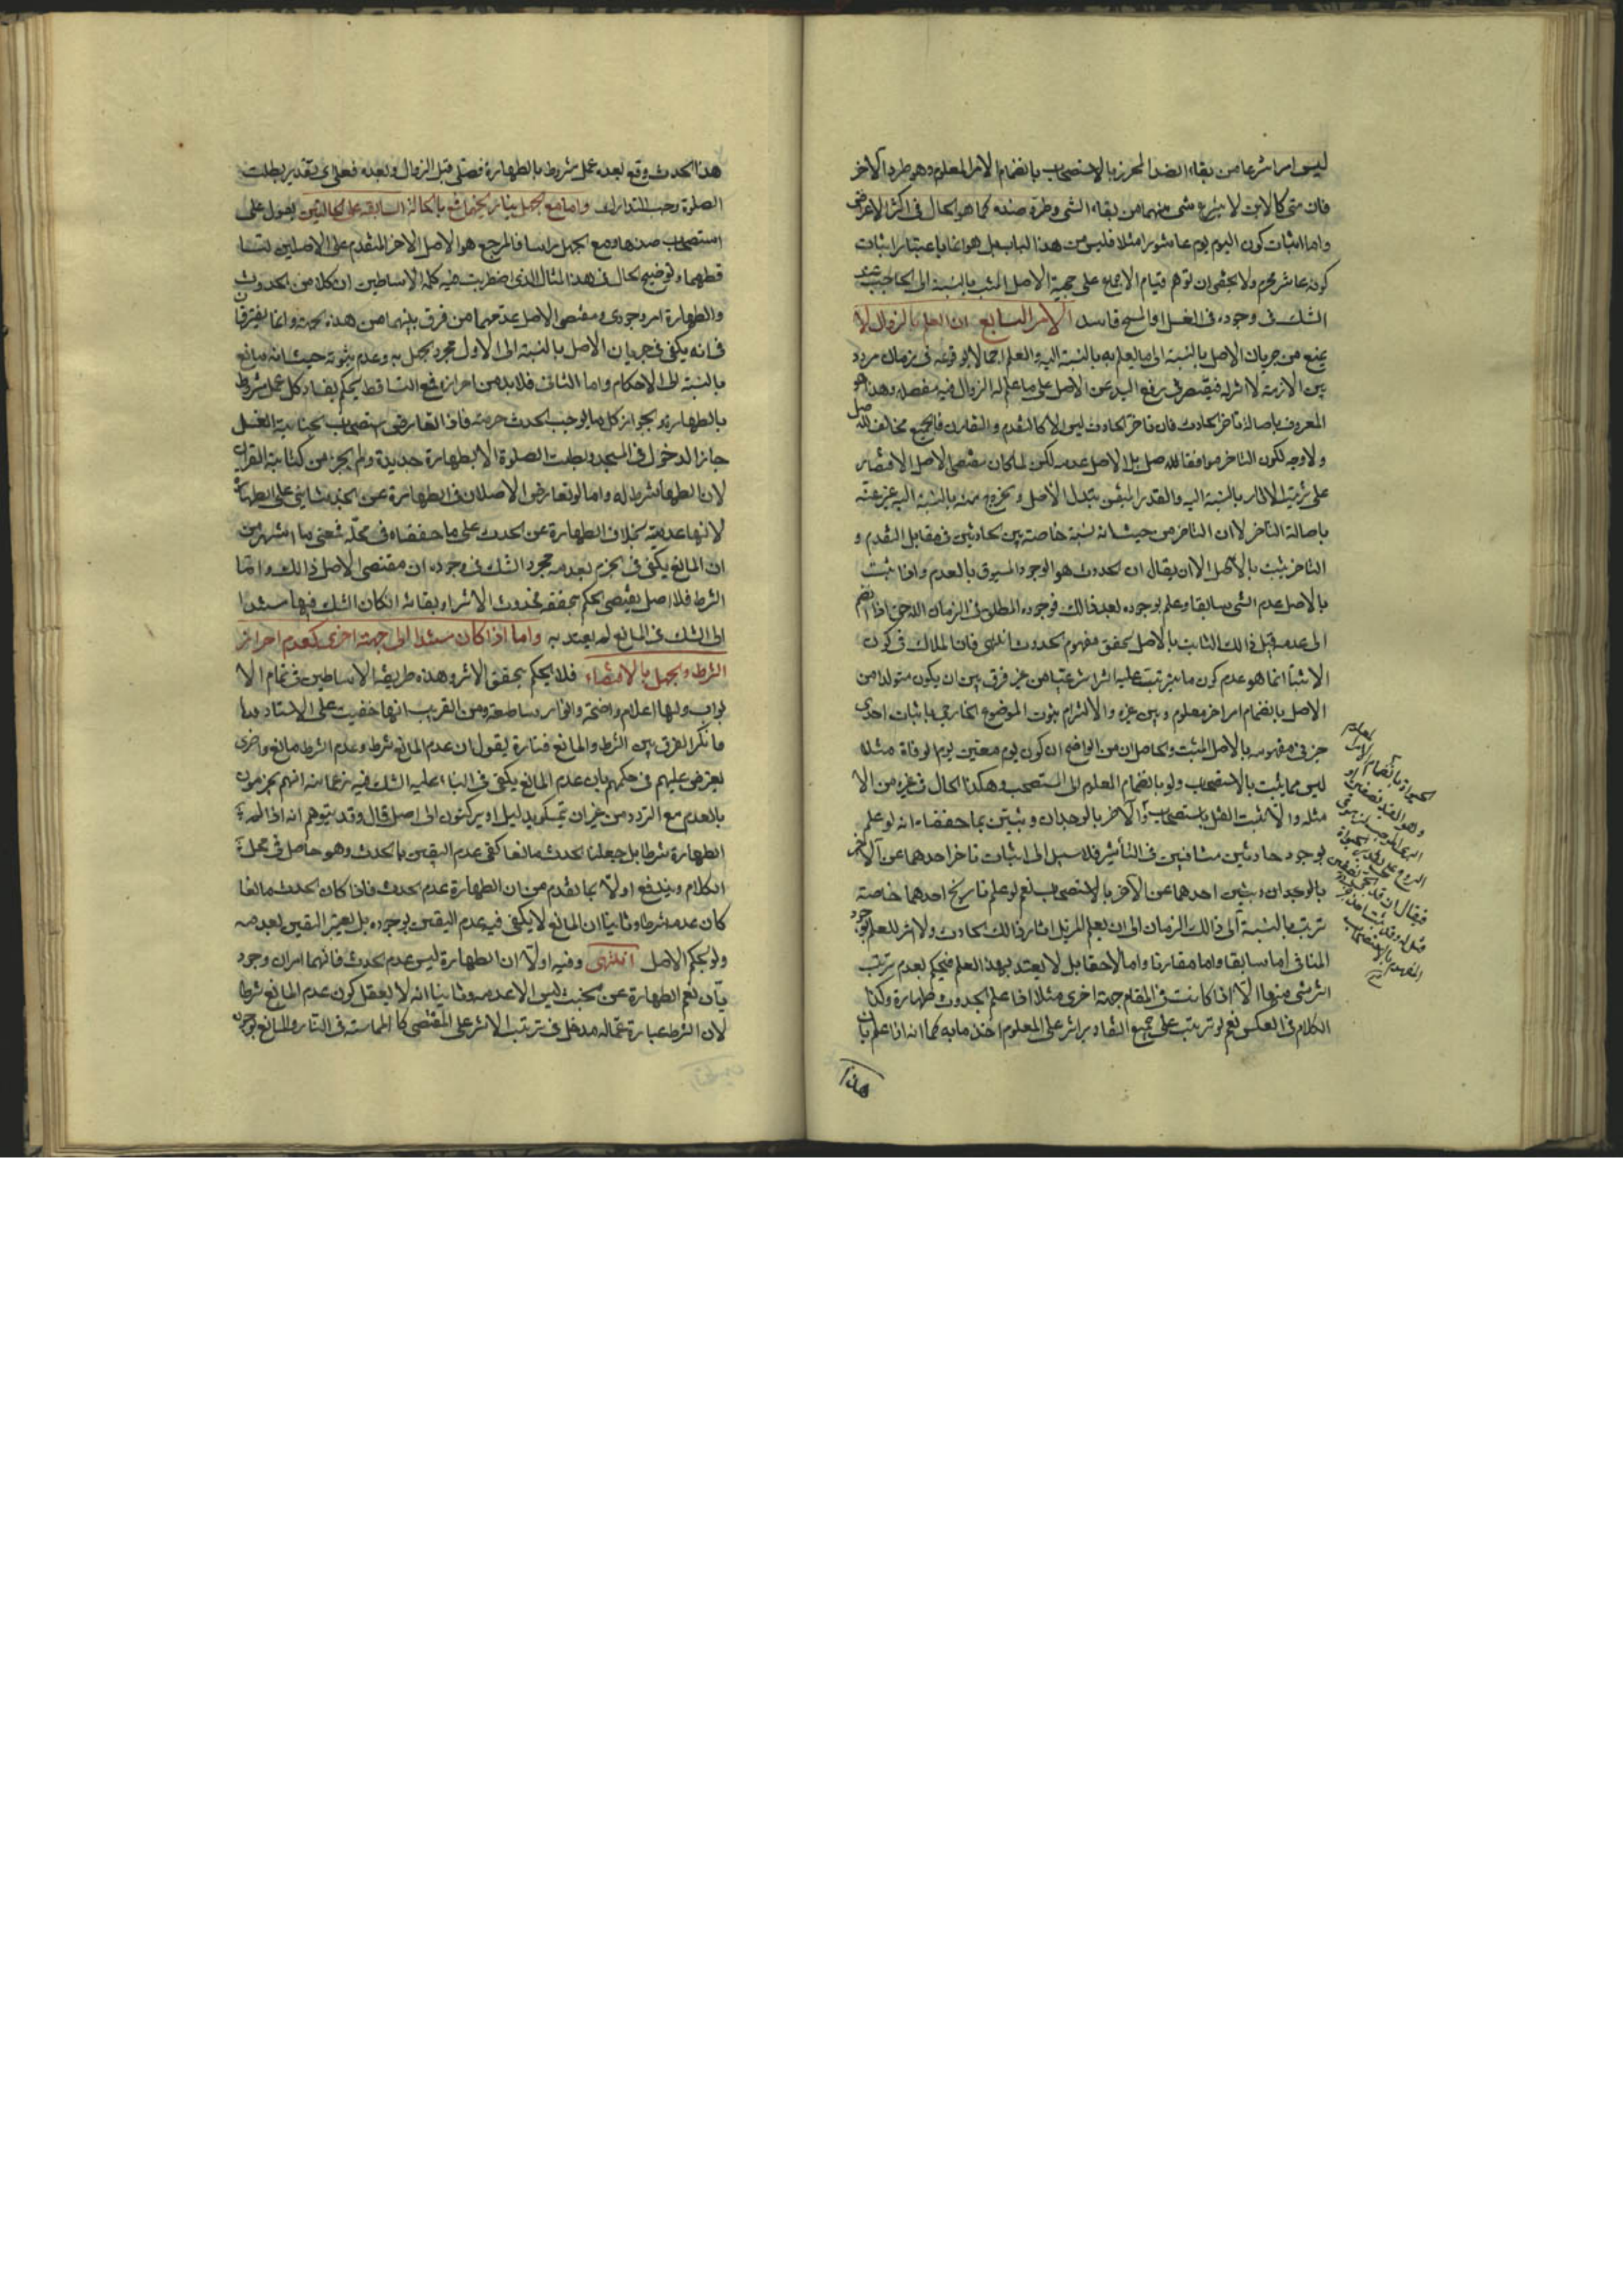 ليس امرا شرعا من بقاء الضد المحرز بالاستصحاب بانضمام الامر المعلوم وهو طرد الآخر
فان متى كالاين لا ينتزع شىء منهما من بقاء الشى وطرد ضده كما هو الحال فى اكثر الاعراض
واما اثبات كون اليوم يوم عاشورا مثلا فليس من هذا الباب بل هو انما باعتبار اثبات
كونه عاشر محرم ولا يخفى ان توهم قيام الاجماع على حجية الاصل المثبت بالنسبة الى الحاجب عند
الشك فى وجوده فى الغسل او المسح فاسد الامر السابع ان العلم بالزوال لا
يمنع من جريان الاصل بالنسبة الى ما لم يعلم به بالنسبة اليه والعلم اجمالا بوقوعه فى زمان مردد
بين الازمنة لا اثر له فيقتصر فى رفع اليد عن الاصل على ما علم له الزوال فيه مفصلا وهذا هو
المعروف باصالة تاخر الحادث فان تاخر الحادث ليس الا كالتقدم والتقارن فالجميع مخالف للاصل
ولا وجه لكون التاخر موافقا للاصل بل الاصل عدمه لكن لما كان مقتضى الاصل الاقتصار
على ترتيب الاثار بالنسبة اليه والقدر المتيقن بتبدل الاصل وخروج منه بالنسبة اليه عبر عنه
باصالة التاخر لا ان التاخر من حيث انه نسبة خاصة بين الحادثين فى مقابل التقدم و
التاخر يثبت بالاصل الا ان يقال ان الحدوث هو الوجود المسبوق بالعدم واذا ثبت
بالاصل عدم الشى سابقا وعلم بوجوده بعد ذالك فوجوده المطلق فى الزمان اللاحق اذا انضم
الى عدمه قبل ذالك الثابت بالاصل تحقق مفهوم الحدوث انتهى فان الملاك فى كون
الاثبات انما هو عدم كون ما يترتب عليه اثرا شرعيا من غير فرق بين ان يكون متولدا من
الاصل بانضمام امر اخر معلوم وبين غيره والالتزام بثبوت الموضوع الخارجى باثبات احدى
جزئى مفهومه بالاصل المثبت والحاصل ان من الواضح ان كون يوم معين يوم الوفاة مثلا
ليس مما يثبت بالاستصحاب ولو بانضمام المعلوم الى المستصحب وهكذا الحال فى غيره من الا
مثله والا لثبت القتل باستصحاب والآخر بالوجدان وتبين بما حققناه انه لو علم
بوجود حادثين متنافيين فى التأثير فلا سبيل الى اثبات تاخر احدهما عن الآخر
بالوجدان وبين احدهما عن الآخر بالاستصحاب نعم لو علم تاريخ احدهما خاصة
ترتب بالنسبة الى ذالك الزمان الى ان يعلم المزيل اثار ذالك الحادث ولا اثر للعلم بوجود
المنافى اما سابقا واما مقارنا واما لاحقا بل لا يعتد بهذا العلم فيحكم بعدم ترتب
اثر شى منها الا اذا كانت فى المقام جهة اخرى مثلا اذا علم الحدوث طهارة وكذا
الكلام فى العكس نعم لو ترتب على جميع التقادير اثر على المعلوم اخذ ما به كما انه اذا علم بان
هذا
هذا الحدث وقع بعده عمل مشروط بالطهارة فصلى قبل الزوال وبعده فعلى اى تقدير بطلت
الصلوة وجب التدارك واما مع الجهل بتاريخهما مع بالحالة السابقة على الحالتين يعول على
استصحاب ضدها ومع الجهل راسا فالمرجع هو الاصل الاخر المتقدم على الاصلين لتسا
قطهما وتوضيح الحال فى هذا المثال الذى اضطربت فيه كلمة الاساطين ان كلا من الحدوث
والطهارة امر وجودى ومقتضى الاصل عدمهما من فرق بينهما من هذه الجهة وانما يفترقان
فى انه يكفى فى جريان الاصل بالنسبة الى الاول مجرد الجهل به وعدم ثبوته حيث انه مانع
بالنسبة الى الاحكام واما الثانى فلا بد من احرازه فمع التساقط يحكم بفساد كل عمل مشروط
بالطهارة وبجواز كل ما يوجب الحدث حرمته فاذا تعارض استصحاب الجنابة الغسل
جاز الدخول فى المسجد وبطلت الصلوة الا بطهارة جديدة ولم يجز من كتابة القران
لان الطهارة شرط له واما لو تعارض الاصلان فى الطهارة عن الخبث بنى على الطهارة
لانها عدمية بخلاف الطهارة عن الحدث على ما حققناه فى محله فمعنى ما اشتهر من
ان المانع يكفى فى الجزم بعدمه مجرد الشك فى وجوده ان مقتضى الاصل ذالك واما
الشرط فلا اصل يقتضى الحكم بتحققه فحدوث الاثر او بقائه ان كان الشك فيها مستندا
الى الشك فى المانع لم يعتد به واما اذا كان مستندا الى جهة اخرى كعدم احراز
الشرط والجهل بالاقتضاء فلا يحكم بتحقق الاثر وهذه طريقة الاساطين فى تمام الا
بواب ولها اعلام واضحة وانوار ساطعة ومن الغريب انها خفيت على الاستاد
فانكر الفرق بين الشرط والمانع فتارة يقول ان عدم المانع شرط وعدم الشرط مانع واخرى
يعترض عليهم فى حكمهم بان عدم المانع يكفى فى البناء عليه الشك فيه زعما منه انهم يجزمون
بالعدم مع التردد من غير ان تمسكوا بدليل او يركنون الى اصل قال وقد يتوهم انه اذا لم
الطهارة شرطا بل جعلنا الحدث مانعا كفى عدم اليقين بالحدث وهو حاصل فى محل
الكلام ويندفع اولا بما تقدم من ان الطهارة عدم الحدث فاذا كان الحدث مانعا
كان عدمه شرطا وثانيا ان المانع لا يكفى فيه عدم اليقين بوجوده بل يعتبر اليقين بعدمه
ولو بحكم الاصل انتهى وفيه اولا ان الطهارة ليس عدم الحدث فانهما امران وجود
يان نعم الطهارة عن الخبث ليس الا عدمه وثانيا انه لا يعقل كون عدم المانع شرطا
لان الشرط عبارة عما له مدخل فى ترتب الاثر على المقتضى كالمماسة فى النار والمانع